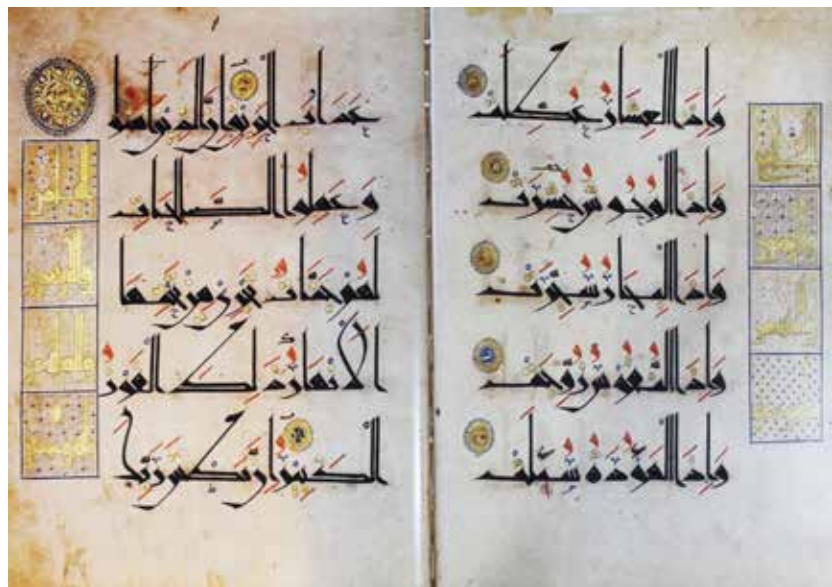 وَإِذَا الْعِشَارُ عُطِّلَتْ
وَإِذَا الْوُحُوشُ حُشِرَتْ
وَإِذَا الْبِحَارُ سُجِّرَتْ
وَإِذَا النُّفُوسُ زُوِّجَتْ
وَإِذَا الْمَوْءُودَةُ سُئِلَتْ
عَذَابُ الْحَرِيقِ إِنَّ الَّذِينَ آمَنُوا
وَعَمِلُوا الصَّالِحَاتِ
لَهُمْ جَنَّاتٌ تَجْرِي مِنْ تَحْتِهَا
الْأَنْهَارُ ذَلِكَ الْفَوْزُ
الْكَبِيرُ إِنَّ بَطْشَ رَبِّكَ